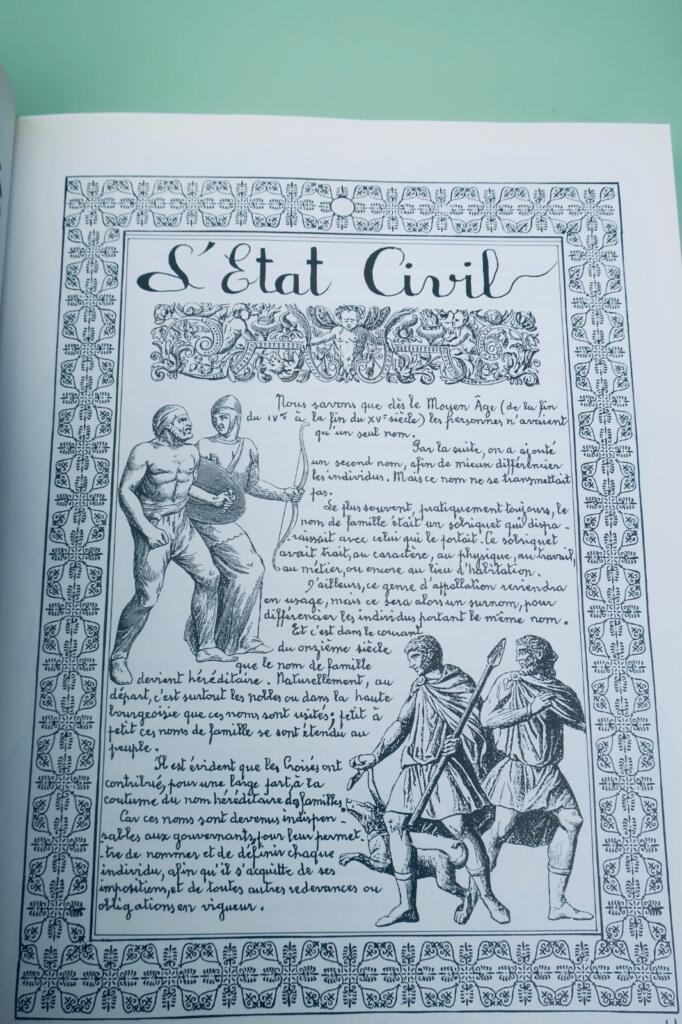 L'Etat Civil
Nous savons que dès le Moyen Âge (de la fin
du IVᵉ à la fin du XVᵉ siècle) les personnes n'avaient
qu'un seul nom.
Par la suite, on a ajouté
un second nom, afin de mieux différencier
les individus. Mais ce nom ne se transmettait
pas.
Le plus souvent, pratiquement toujours, le
nom de famille était un sobriquet qui dispa-
raissait avec celui qui le portait. Ce sobriquet
avait trait, au caractère, au physique, au travail,
au métier, ou encore au lieu d'habitation.
D'ailleurs, ce genre d'appellation reviendra
en usage, mais ce sera alors un surnom, pour
différencier les individus portant le même nom.
Et c'est dans le courant
du onzième siècle
que le nom de famille
devient héréditaire. Naturellement, au
départ, c'est surtout les nobles ou dans la haute
bourgeoisie que ces noms sont usités; petit à
petit ces noms de famille se sont étendu au
peuple.
Il est évident que les Croisés ont
contribué, pour une large part, à la
coutume du nom héréditaire des familles.
Car ces noms sont devenus indispen-
sables aux gouvernants, pour leur permet-
tre de nommer et de définir chaque
individu, afin qu'il s'acquitte de ses
impositions, et de toutes autres redevances ou
obligations en vigueur.